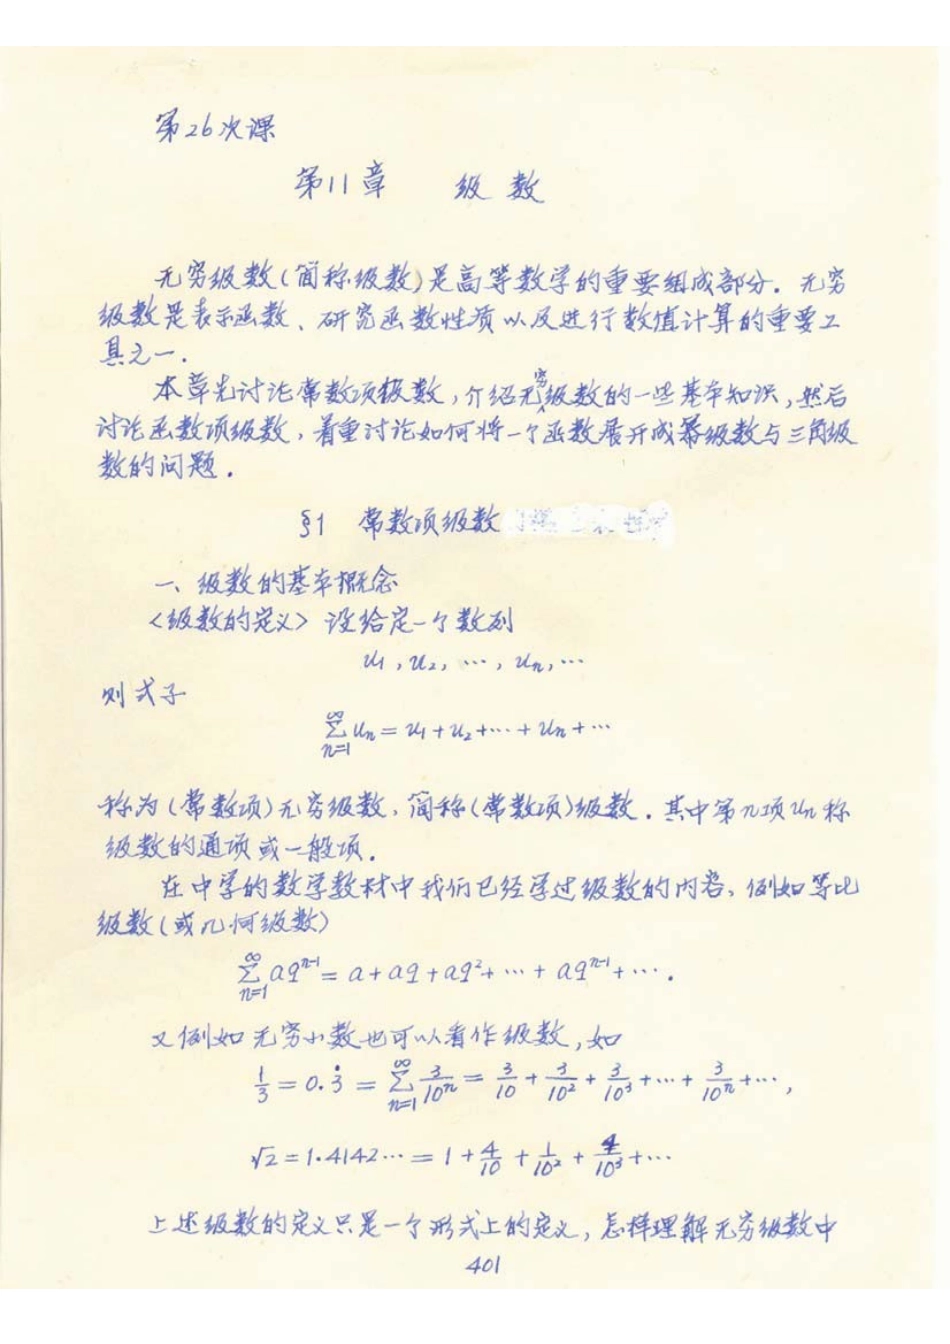 第26次课
第11章 级数
无穷级数(简称级数)是高等数学的重要组成部分. 无穷
级数是表示函数、研究函数性质以及进行数值计算的重要工
具之一.
本章先讨论常数项级数,介绍无穷级数的一些基本知识,然后
讨论函数项级数,着重讨论如何将一个函数展开成幂级数与三角级
数的问题.
§1 常数项级数
一、级数的基本概念
<级数的定义> 设给定一个数列
u₁, u₂, ⋯, uₙ, ⋯
则式子
∑_{n=1}^{∞} uₙ = u₁ + u₂ + ⋯ + uₙ + ⋯
称为(常数项)无穷级数,简称(常数项)级数. 其中第n项uₙ称
级数的通项或一般项.
在中学的数学教材中我们已经学过级数的内容,例如等比
级数(或几何级数)
∑_{n=1}^{∞} aq^{n-1} = a + aq + aq² + ⋯ + aq^{n-1} + ⋯.
又例如无穷小数也可以看作级数,如
1/3 = 0.3̇ = ∑_{n=1}^{∞} 3/10ⁿ = 3/10 + 3/10² + 3/10³ + ⋯ + 3/10ⁿ + ⋯,
√2 = 1.4142⋯ = 1 + 4/10 + 1/10² + 4/10³ + ⋯
上述级数的定义只是一个形式上的定义,怎样理解无穷级数中
401